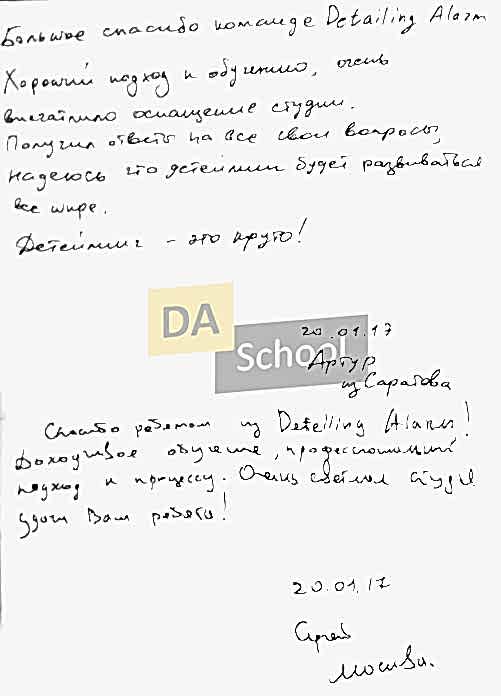 Большое спасибо команде Detailing Alarm
Хороший подход к обучению, очень
впечатлило оснащение студии.
Получил ответы на все свои вопросы,
надеюсь что детейлинг будет развиваться
все шире.
Детейлинг – это круто!
DA
School
20.01.17
Артур
из Саратова
Спасибо ребятам из Detailing Alarm!
Доходчивое обучение, профессиональный
подход к процессу. Очень светлая студия
удачи Вам ребята!
20.01.17
Сергей
Москва.